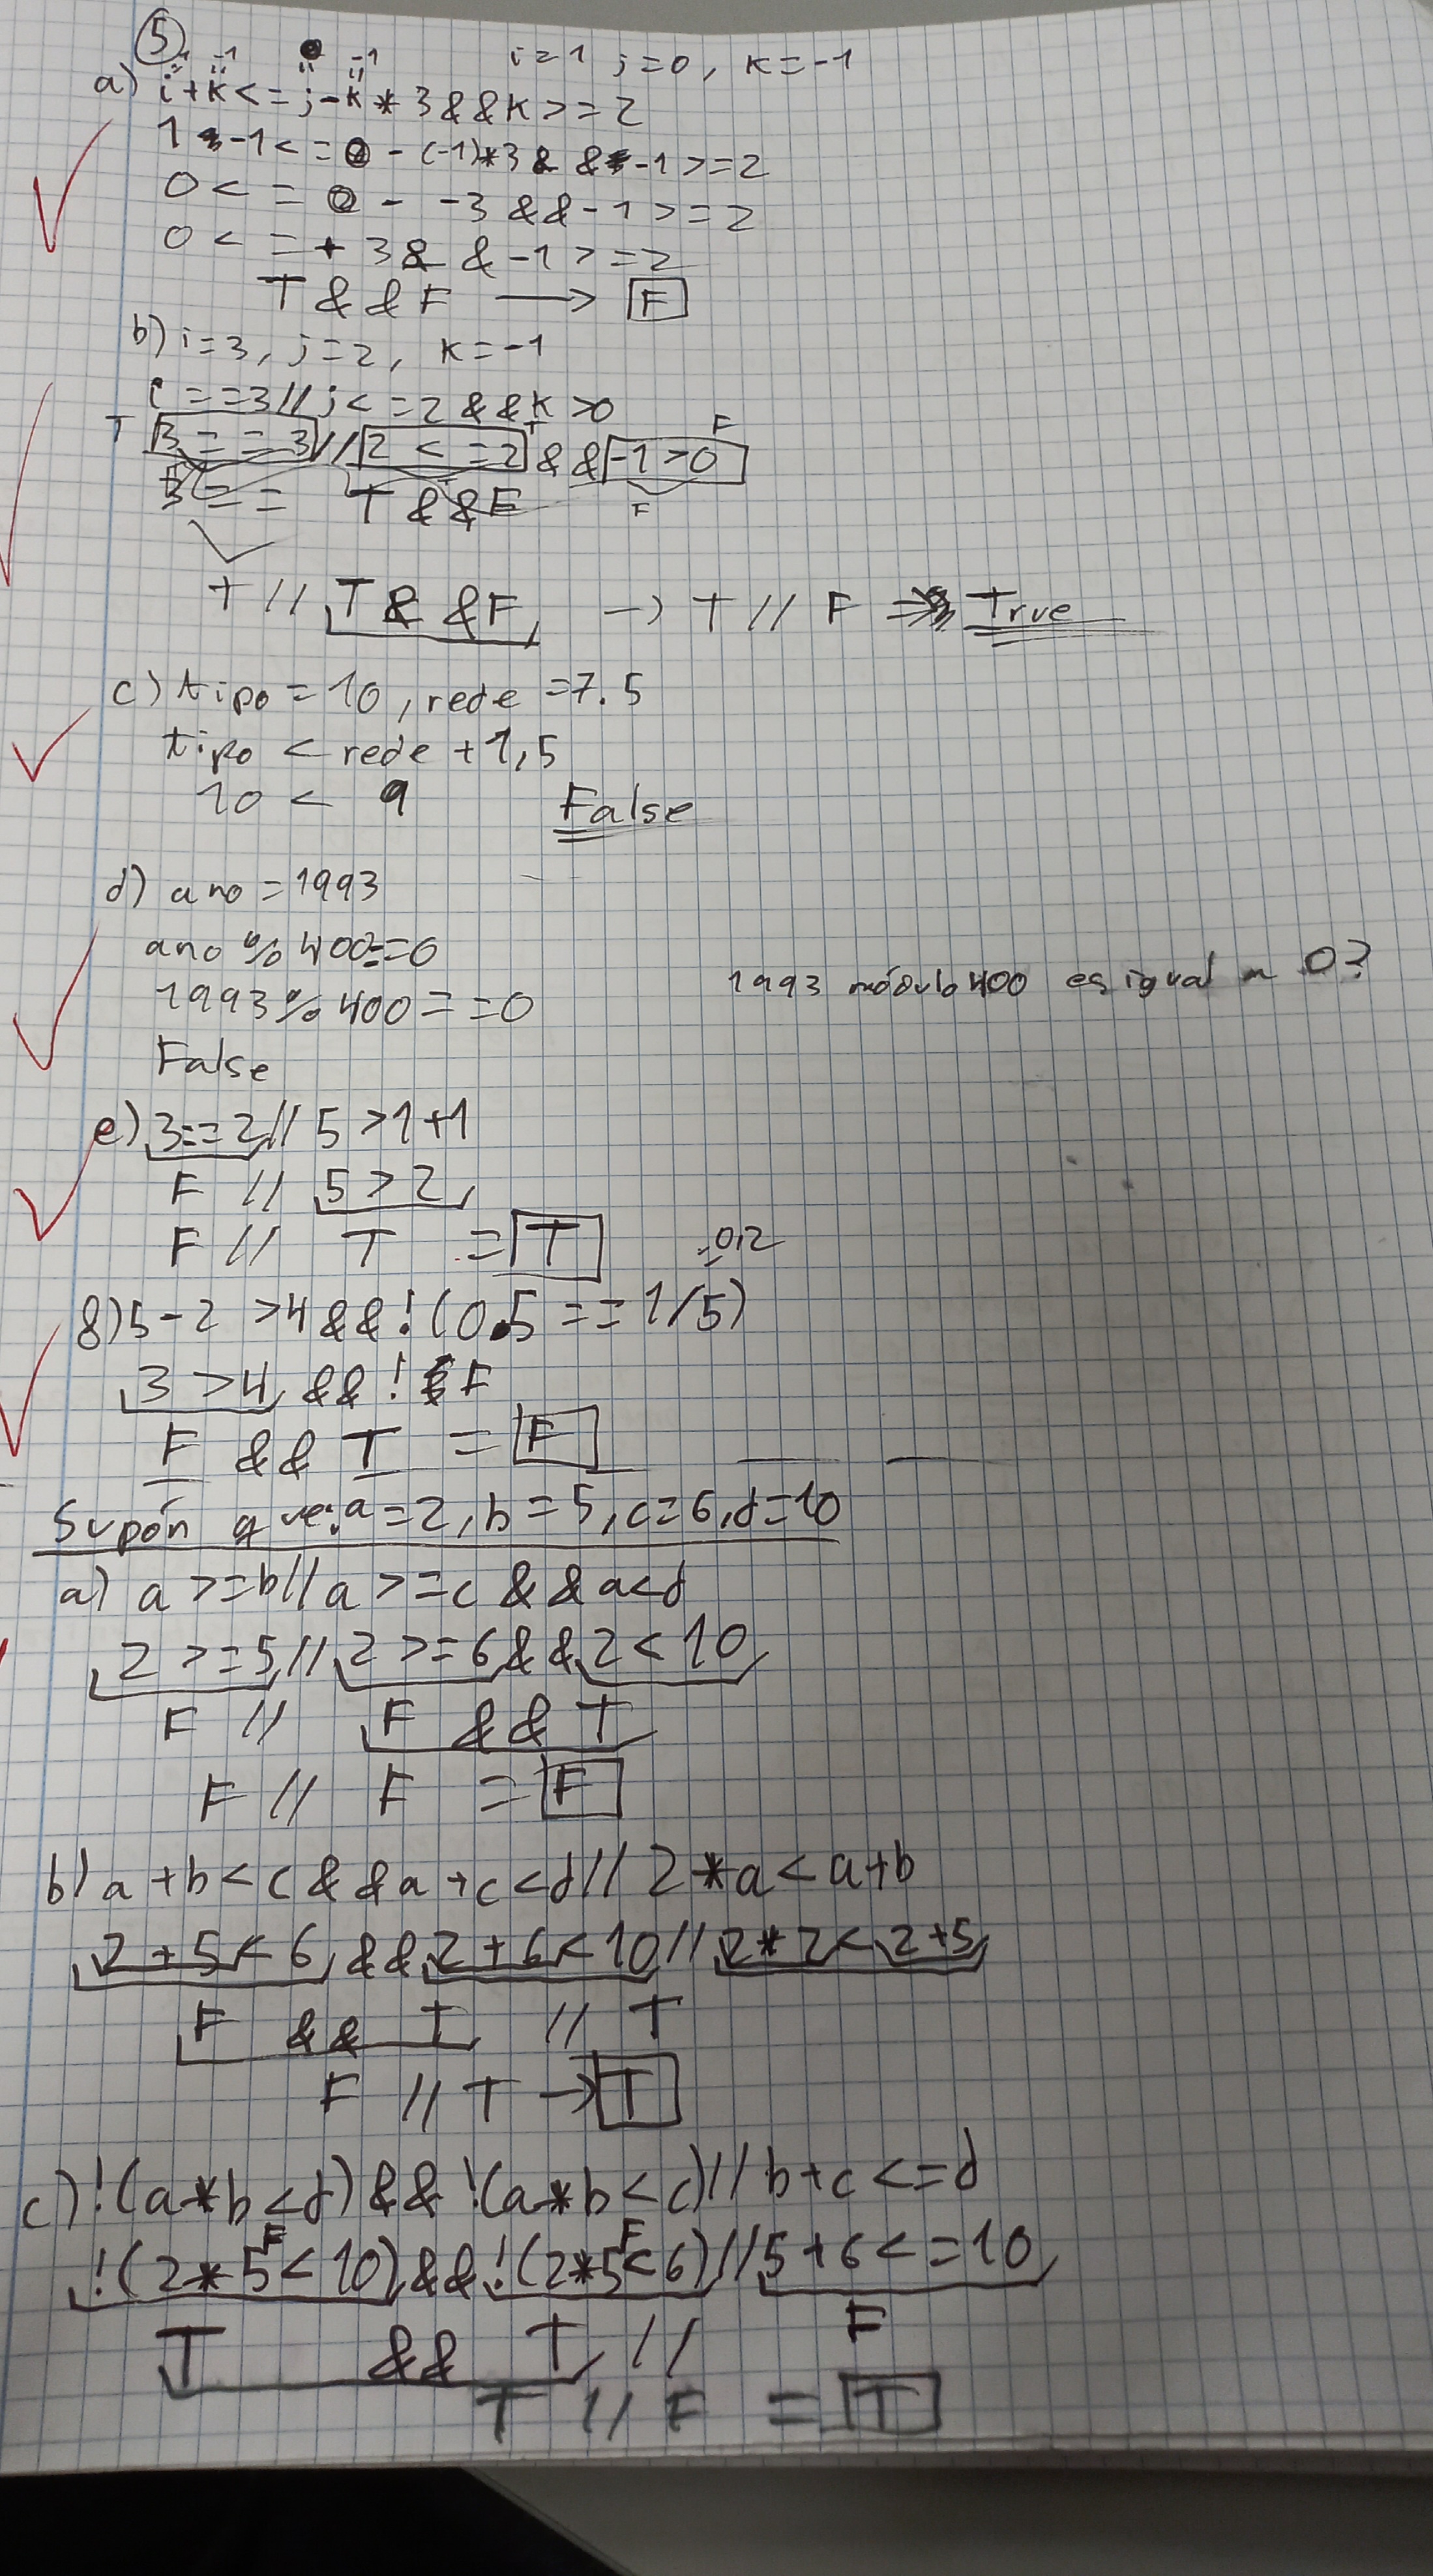 5
i=1 j=0, k=-1
-1 -1
a) i+k<=j-k*3&&k>=2
1-1<=0-(-1)*3&&-1>=2
0<=0--3&&-1>=2
0<=+3&&-1>=2
T&&F → F
b) i=3, j=2, k=-1
i==3//j<=2&&k>0
T T F
3==3//2<=2&&-1>0
== T&&F F
T//T&&F → T//F ⇒ True
c) tipo=10, rede=7.5
tipo < rede +1,5
10 < 9 False
d) ano=1993
ano%400==0
1993 módulo 400 es igual a 0?
1993%400==0
False
e) 3==2//5>1+1
F // 5>2
F // T = T
0,2
8) 5-2>4&&!(0.5==1/5)
3>4&&!F
F && T = F
Supón que: a=2, b=5, c=6, d=10
a) a>=b//a>=c&&a<d
2>=5//2>=6&&2<10
F // F && T
F // F = F
b) a+b<c&&a+c<d//2*a<a+b
2+5<6&&2+6<10//2*2<2+5
F && T // T
F // T → T
c) !(a*b<d)&&!(a*b<c)//b+c<=d
F F
!(2*5<10)&&!(2*5<6)//5+6<=10
T && T // F
T // F = T